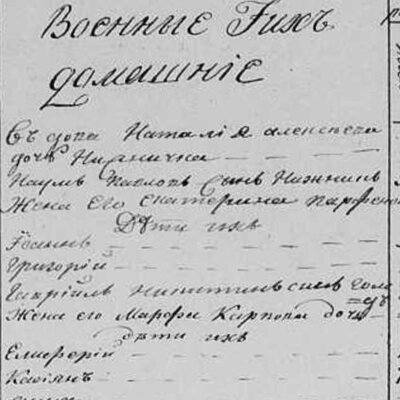 Военные Ихъ
домашнiе
Въдова Наталiя Алексѣева
дочь
Наумъ Павловъ сынъ
Жена Его Екатерина Парфено
Дѣти ихъ
Iоаннъ
Григорiй
Гаврiилъ Никитинъ сынъ
Жена его Марфа Карпова дочь
дѣти ихъ
Елиферiй
Касiянъ